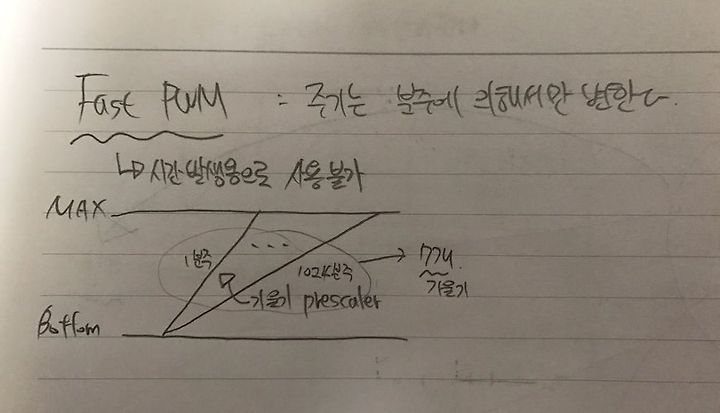 Fast PWM : 주기는 분주에 의해서만 변한다.
↳ 시간 발생용으로 사용불가
MAX
1분주
...
1024분주
→ 7개.
기울기
기울기 prescaler
Bottom